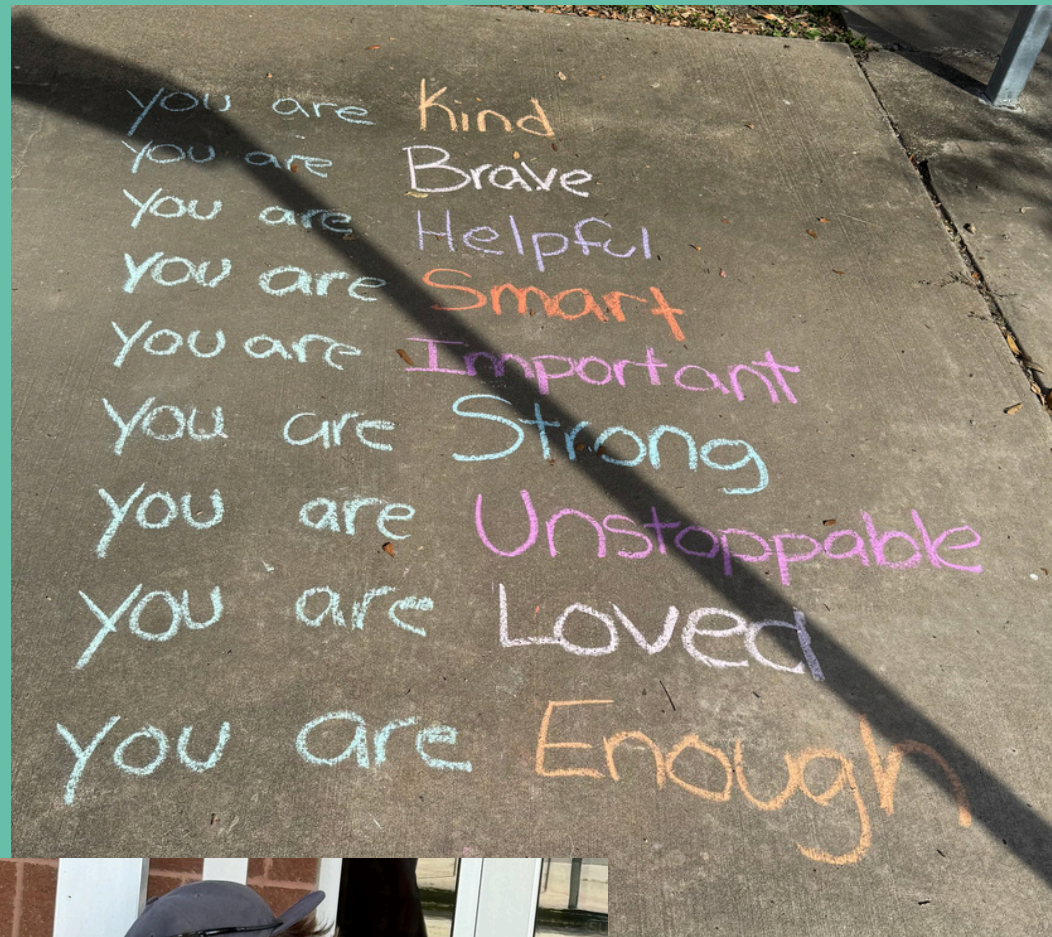 you are Kind
you are Brave
you are Helpful
you are Smart
you are Important
you are Strong
you are Unstoppable
you are Loved
you are Enough